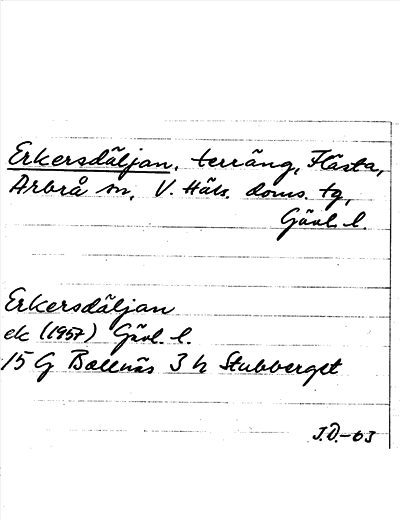 Erkersdäljan, terräng, Flästa,
Arbrå sn, V. Häls. doms. tg,
Gävl. l.
Erkersdäljan
ek (1957) Gävl. l.
15 G Bollnäs 3 h Stubberget
J.D.-63